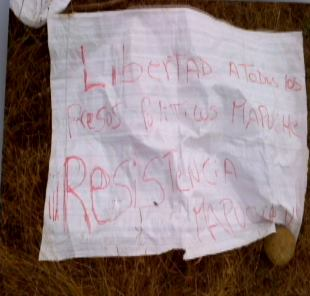 LIbERTAD A TODOS los
PResos Politicos MAPUCHE
¡¡ResisTENCIA
MAPUCHE!!